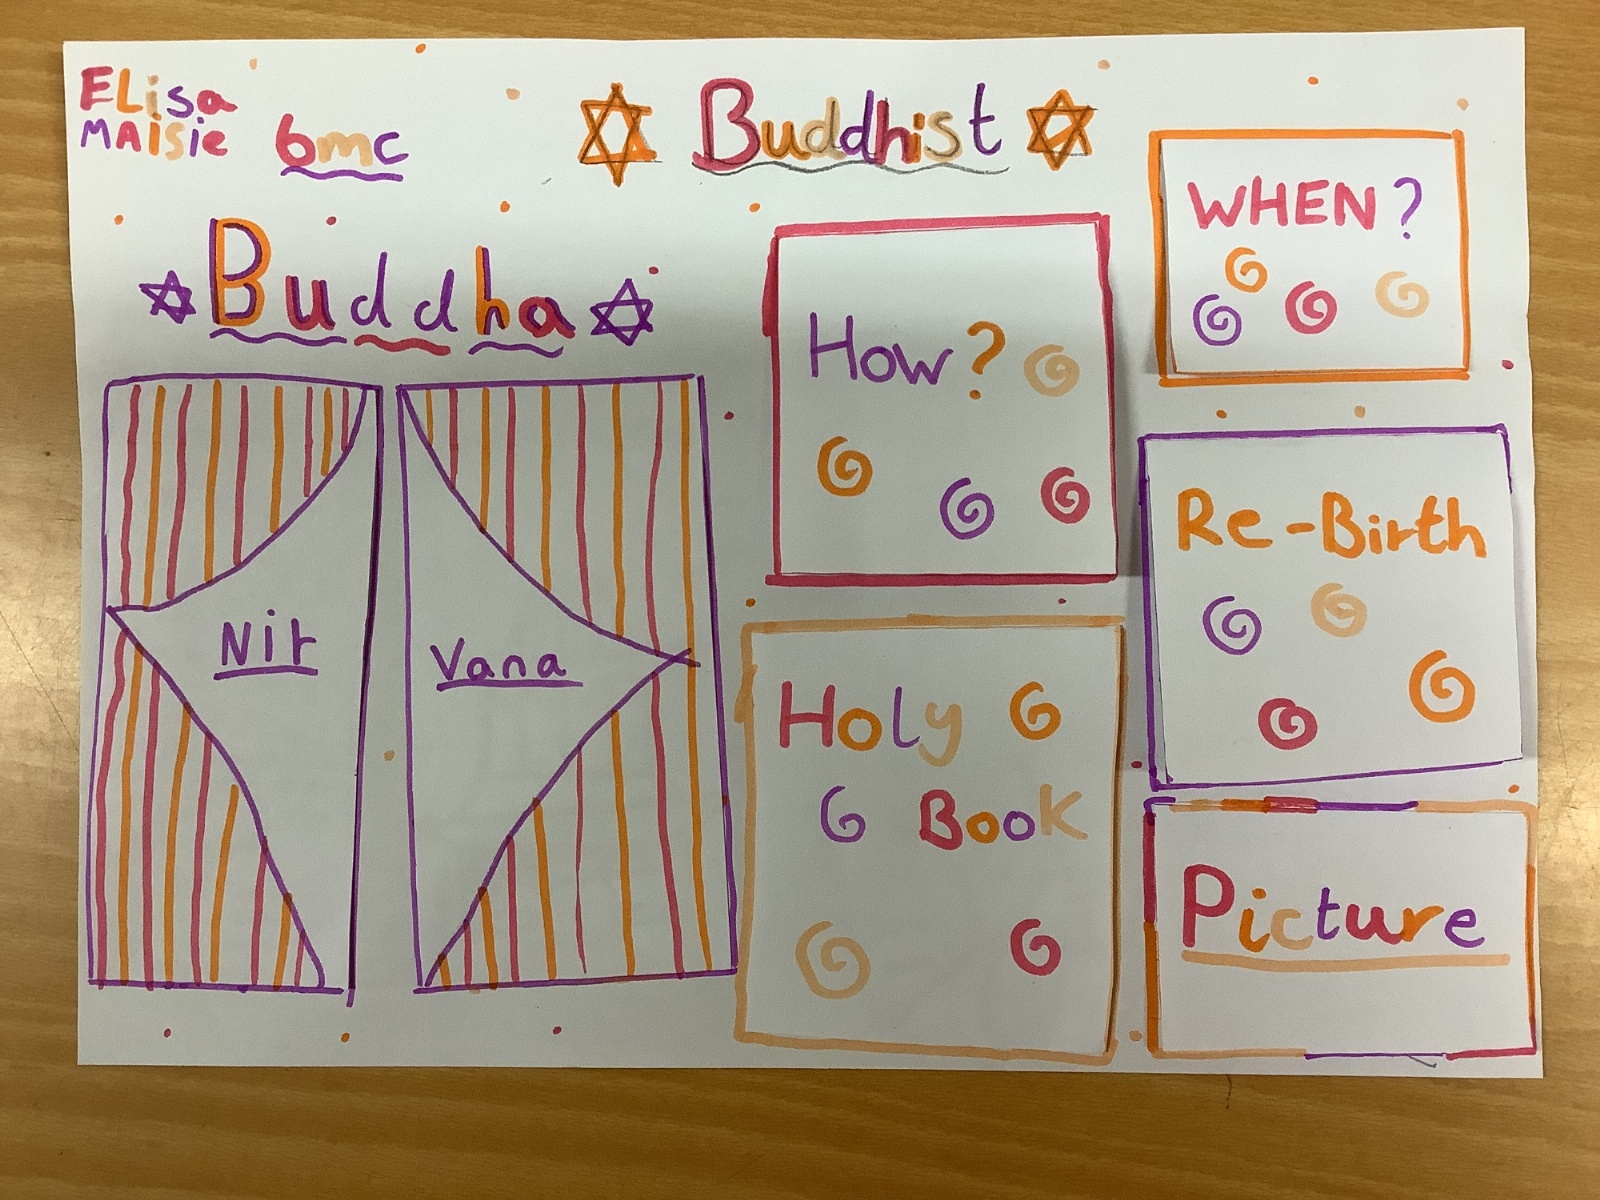 ELisa
MAisie
6mc
Buddhist
Buddha
Nir
Vana
How?
WHEN?
Re-Birth
Holy
Book
Picture